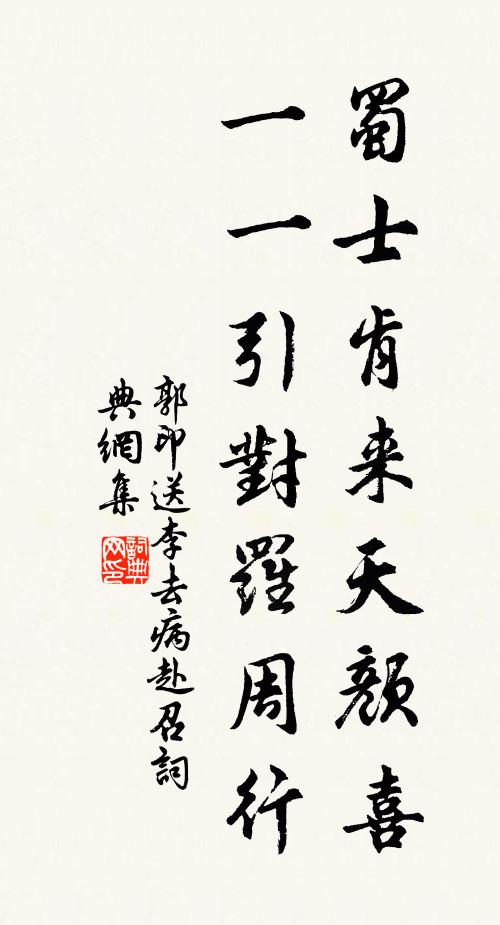 蜀士肯来天顏喜
一一引對羅周行
郭印送李去病赴召詞
典網集
詞典网印